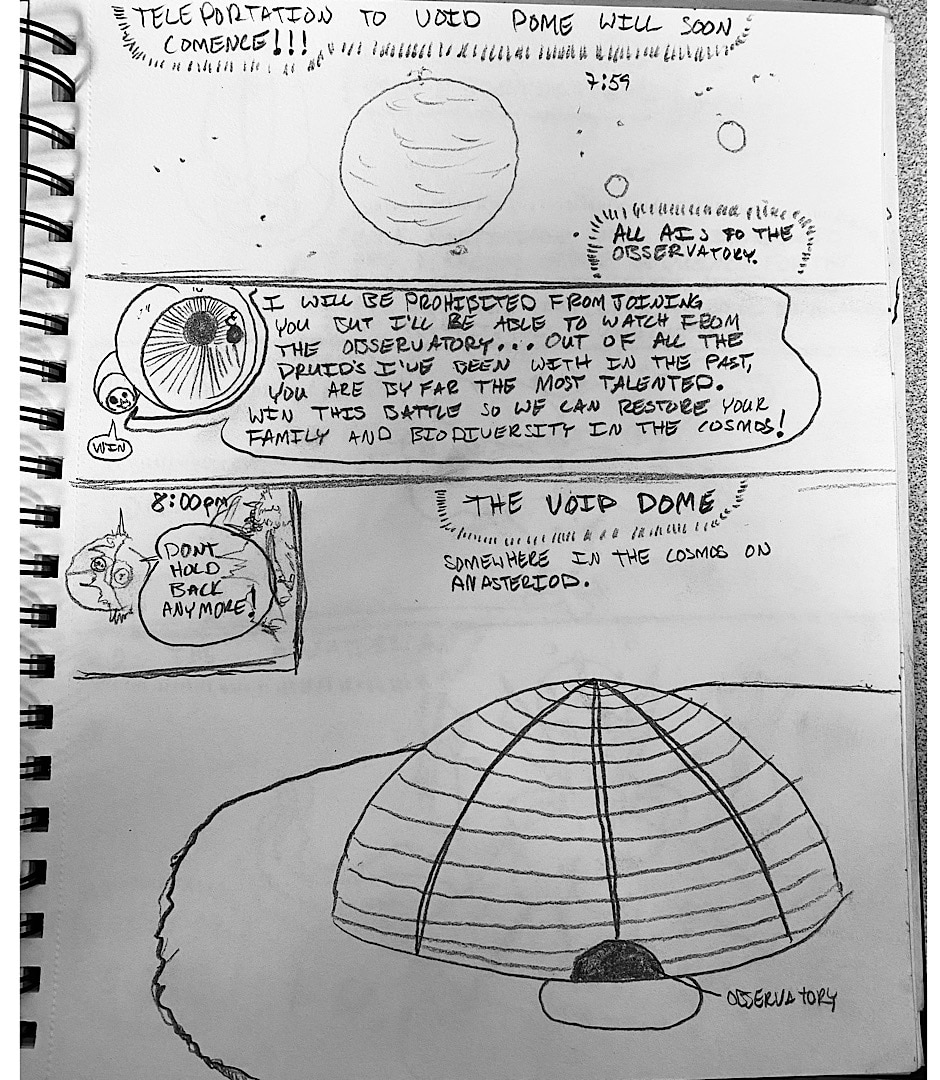 TELEPORTATION TO VOID DOME WILL SOON
COMENCE!!!
7:59
ALL AIS TO THE
OBSERVATORY.
I WILL BE PROHIBITED FROM JOINING
YOU BUT I'LL BE ABLE TO WATCH FROM
THE OBSERVATORY... OUT OF ALL THE
DRUID'S I'VE BEEN WITH IN THE PAST,
YOU ARE BY FAR THE MOST TALENTED.
WIN THIS BATTLE SO WE CAN RESTORE YOUR
FAMILY AND BIODIVERSITY IN THE COSMOS!
WIN
8:00PM
DONT
HOLD
BACK
ANYMORE!
THE VOID DOME
SOMEWHERE IN THE COSMOS ON
AN ASTERIOD.
OBSERVATORY